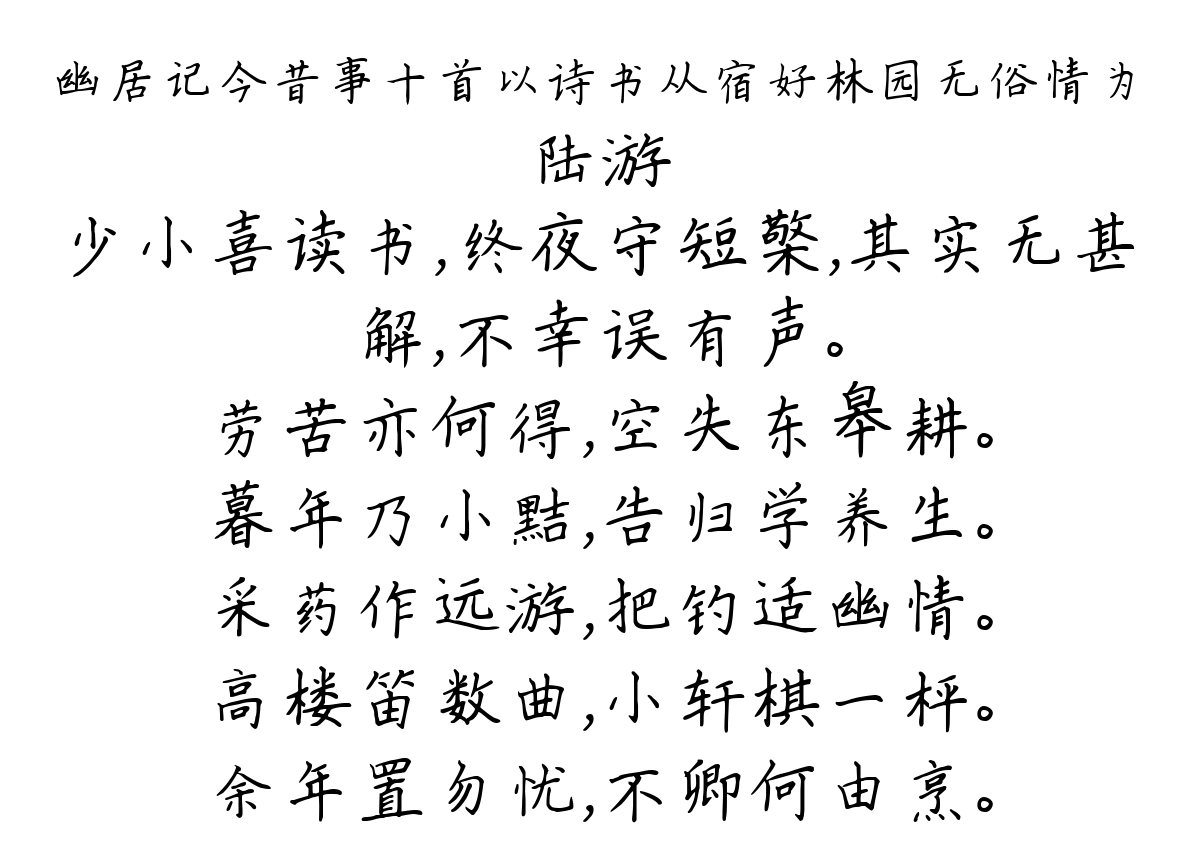 幽居记今昔事十首以诗书从宿好林园无俗情为
陆游
少小喜读书,终夜守短檠,其实无甚
解,不幸误有声。
劳苦亦何得,空失东皋耕。
暮年乃小黠,告归学养生。
采药作远游,把钓适幽情。
高楼笛数曲,小轩棋一枰。
余年置勿忧,不卿何由烹。